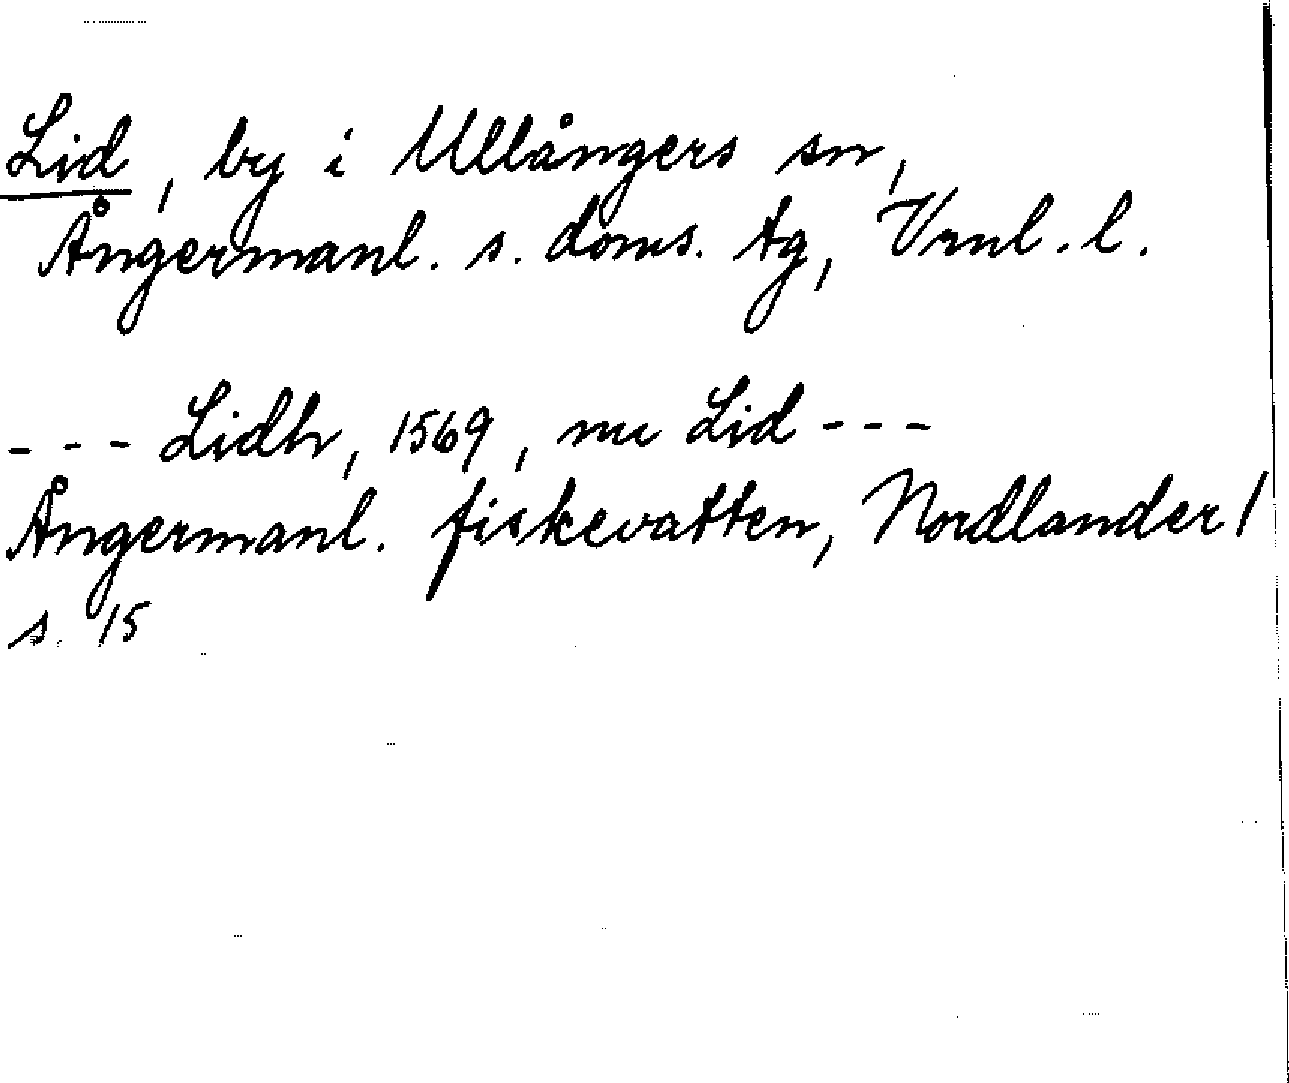 Lid, by i Ullångers sn,
Ångermanl. s. doms. tg, Vrnl. l.
- - - Lidh, 1569, nu Lid - - -
Ångermanl. fiskevatten, Nordlander 1
s. 15